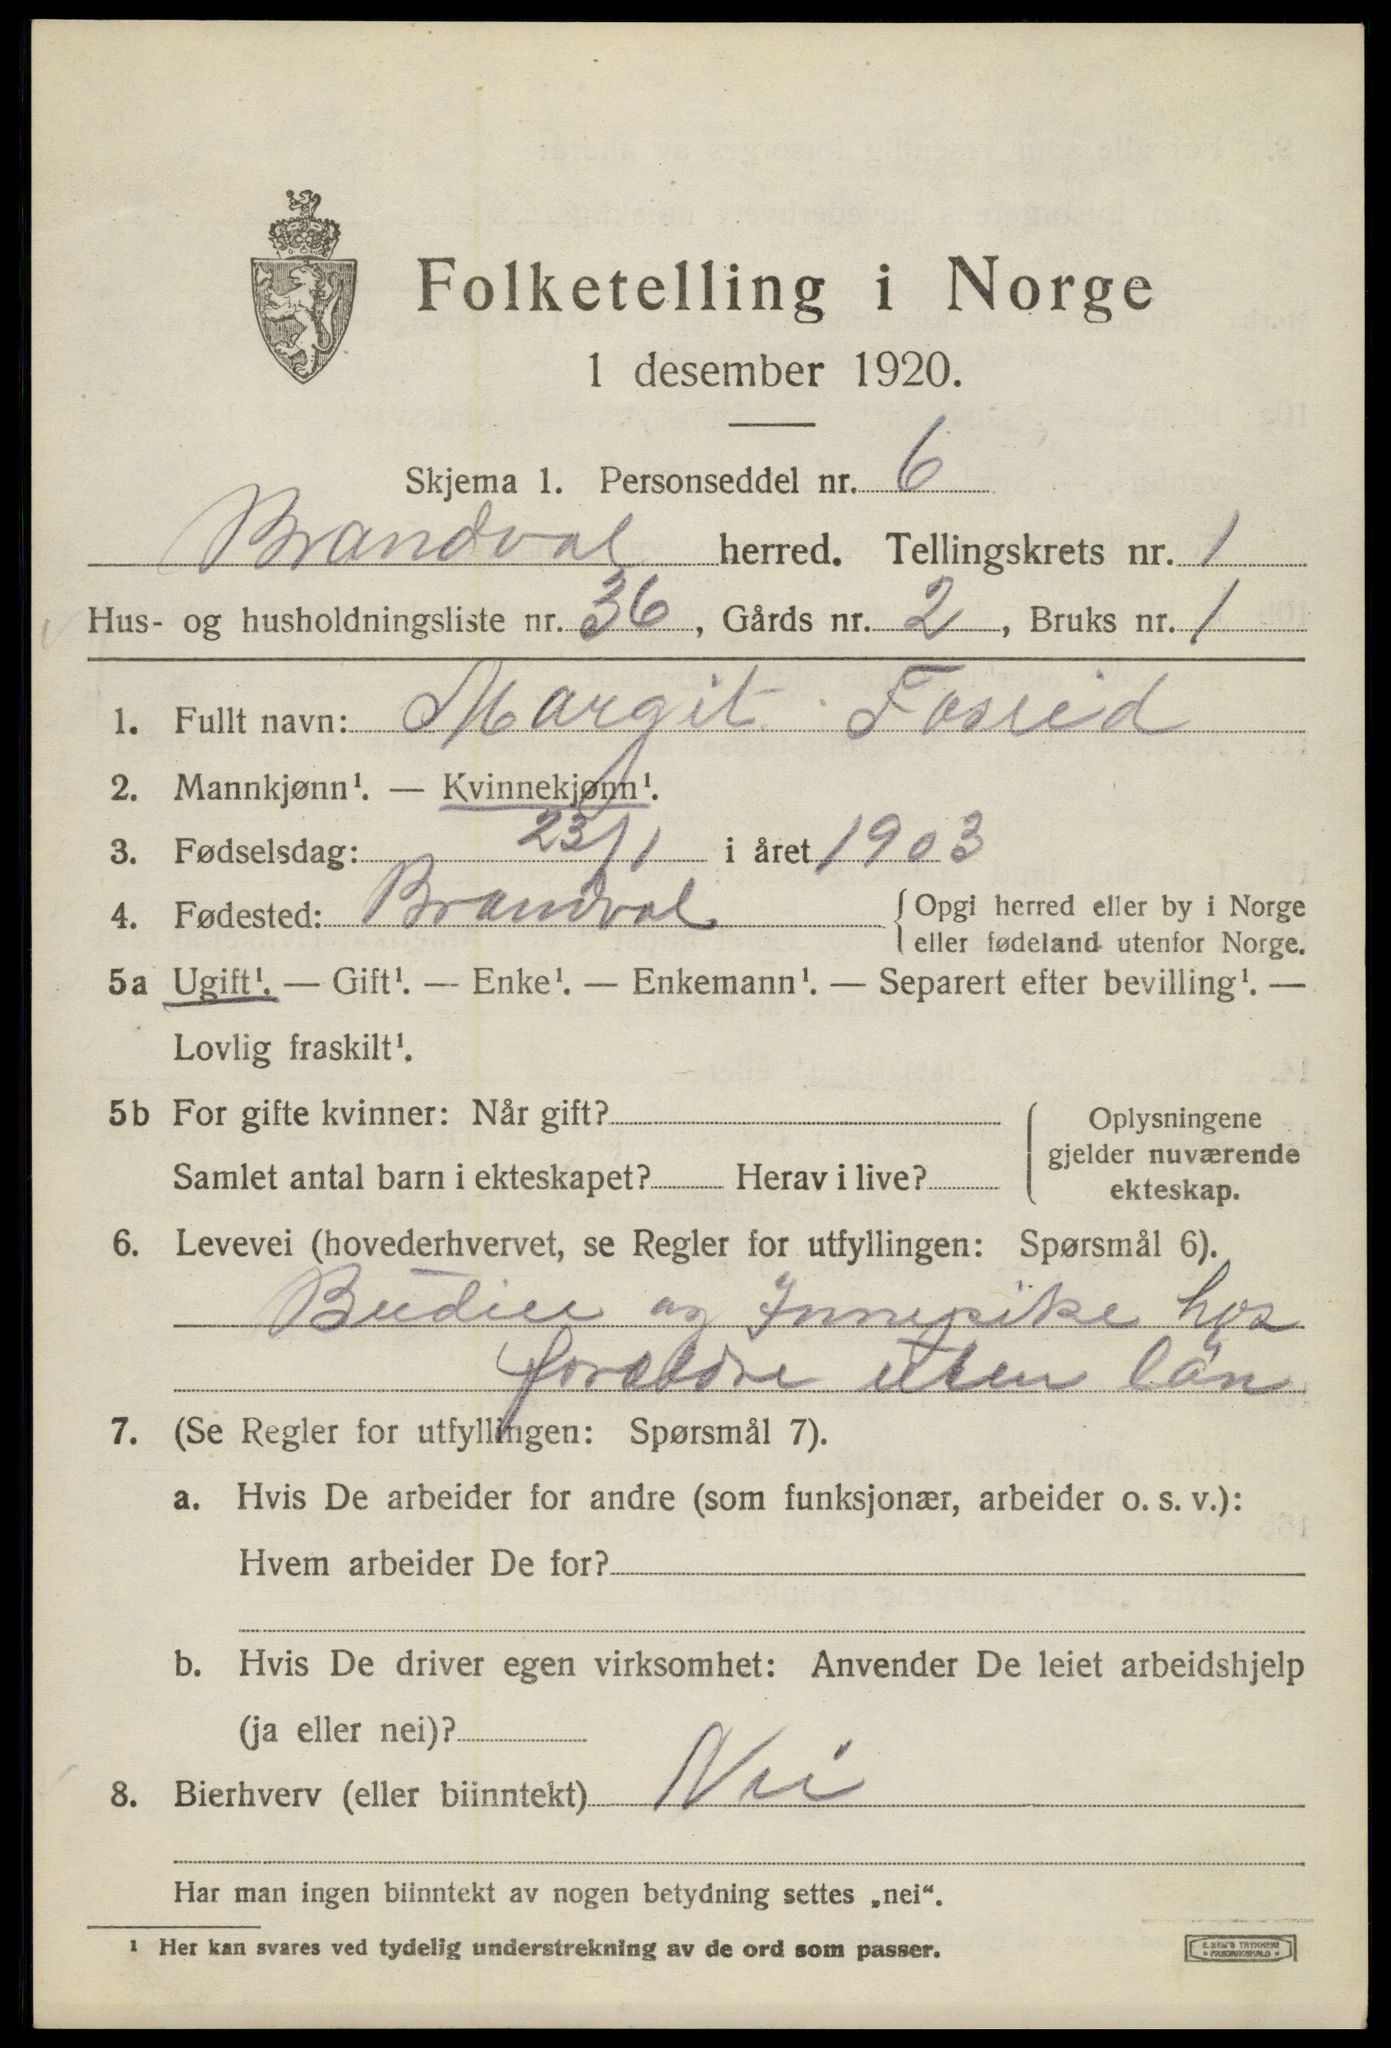 Folketelling i Norge
1 desember 1920.
Skjema 1. Personseddel nr. 6
Brandval herred. Tellingskrets nr. 1
Hus- og husholdningsliste nr. 36, Gårds nr. 2, Bruks nr. 1
1. Fullt navn: Margit Fosseid
2. Mannkjønn¹. — Kvinnekjønn¹.
3. Fødselsdag: 23/1 i året 1903
4. Fødested: Brandval {Opgi herred eller by i Norge
eller fødeland utenfor Norge.
5a Ugift¹. — Gift¹. — Enke¹. — Enkemann¹. — Separert efter bevilling¹. —
Lovlig fraskilt¹.
5b For gifte kvinner: Når gift?
Samlet antal barn i ekteskapet? Herav i live?
Oplysningene
gjelder nuværende
ekteskap.
6. Levevei (hovederhvervet, se Regler for utfyllingen: Spørsmål 6).
Budeie og Innepike hos
foreldre uten lön
7. (Se Regler for utfyllingen: Spørsmål 7).
a. Hvis De arbeider for andre (som funksjonær, arbeider o. s. v.):
Hvem arbeider De for?
b. Hvis De driver egen virksomhet: Anvender De leiet arbeidshjelp
(ja eller nei)?
8. Bierhverv (eller biinntekt) Nei
Har man ingen biinntekt av nogen betydning settes „nei“.
¹ Her kan svares ved tydelig understrekning av de ord som passer.
E. SEM'S TRYKKERI
FREDRIKSHALD